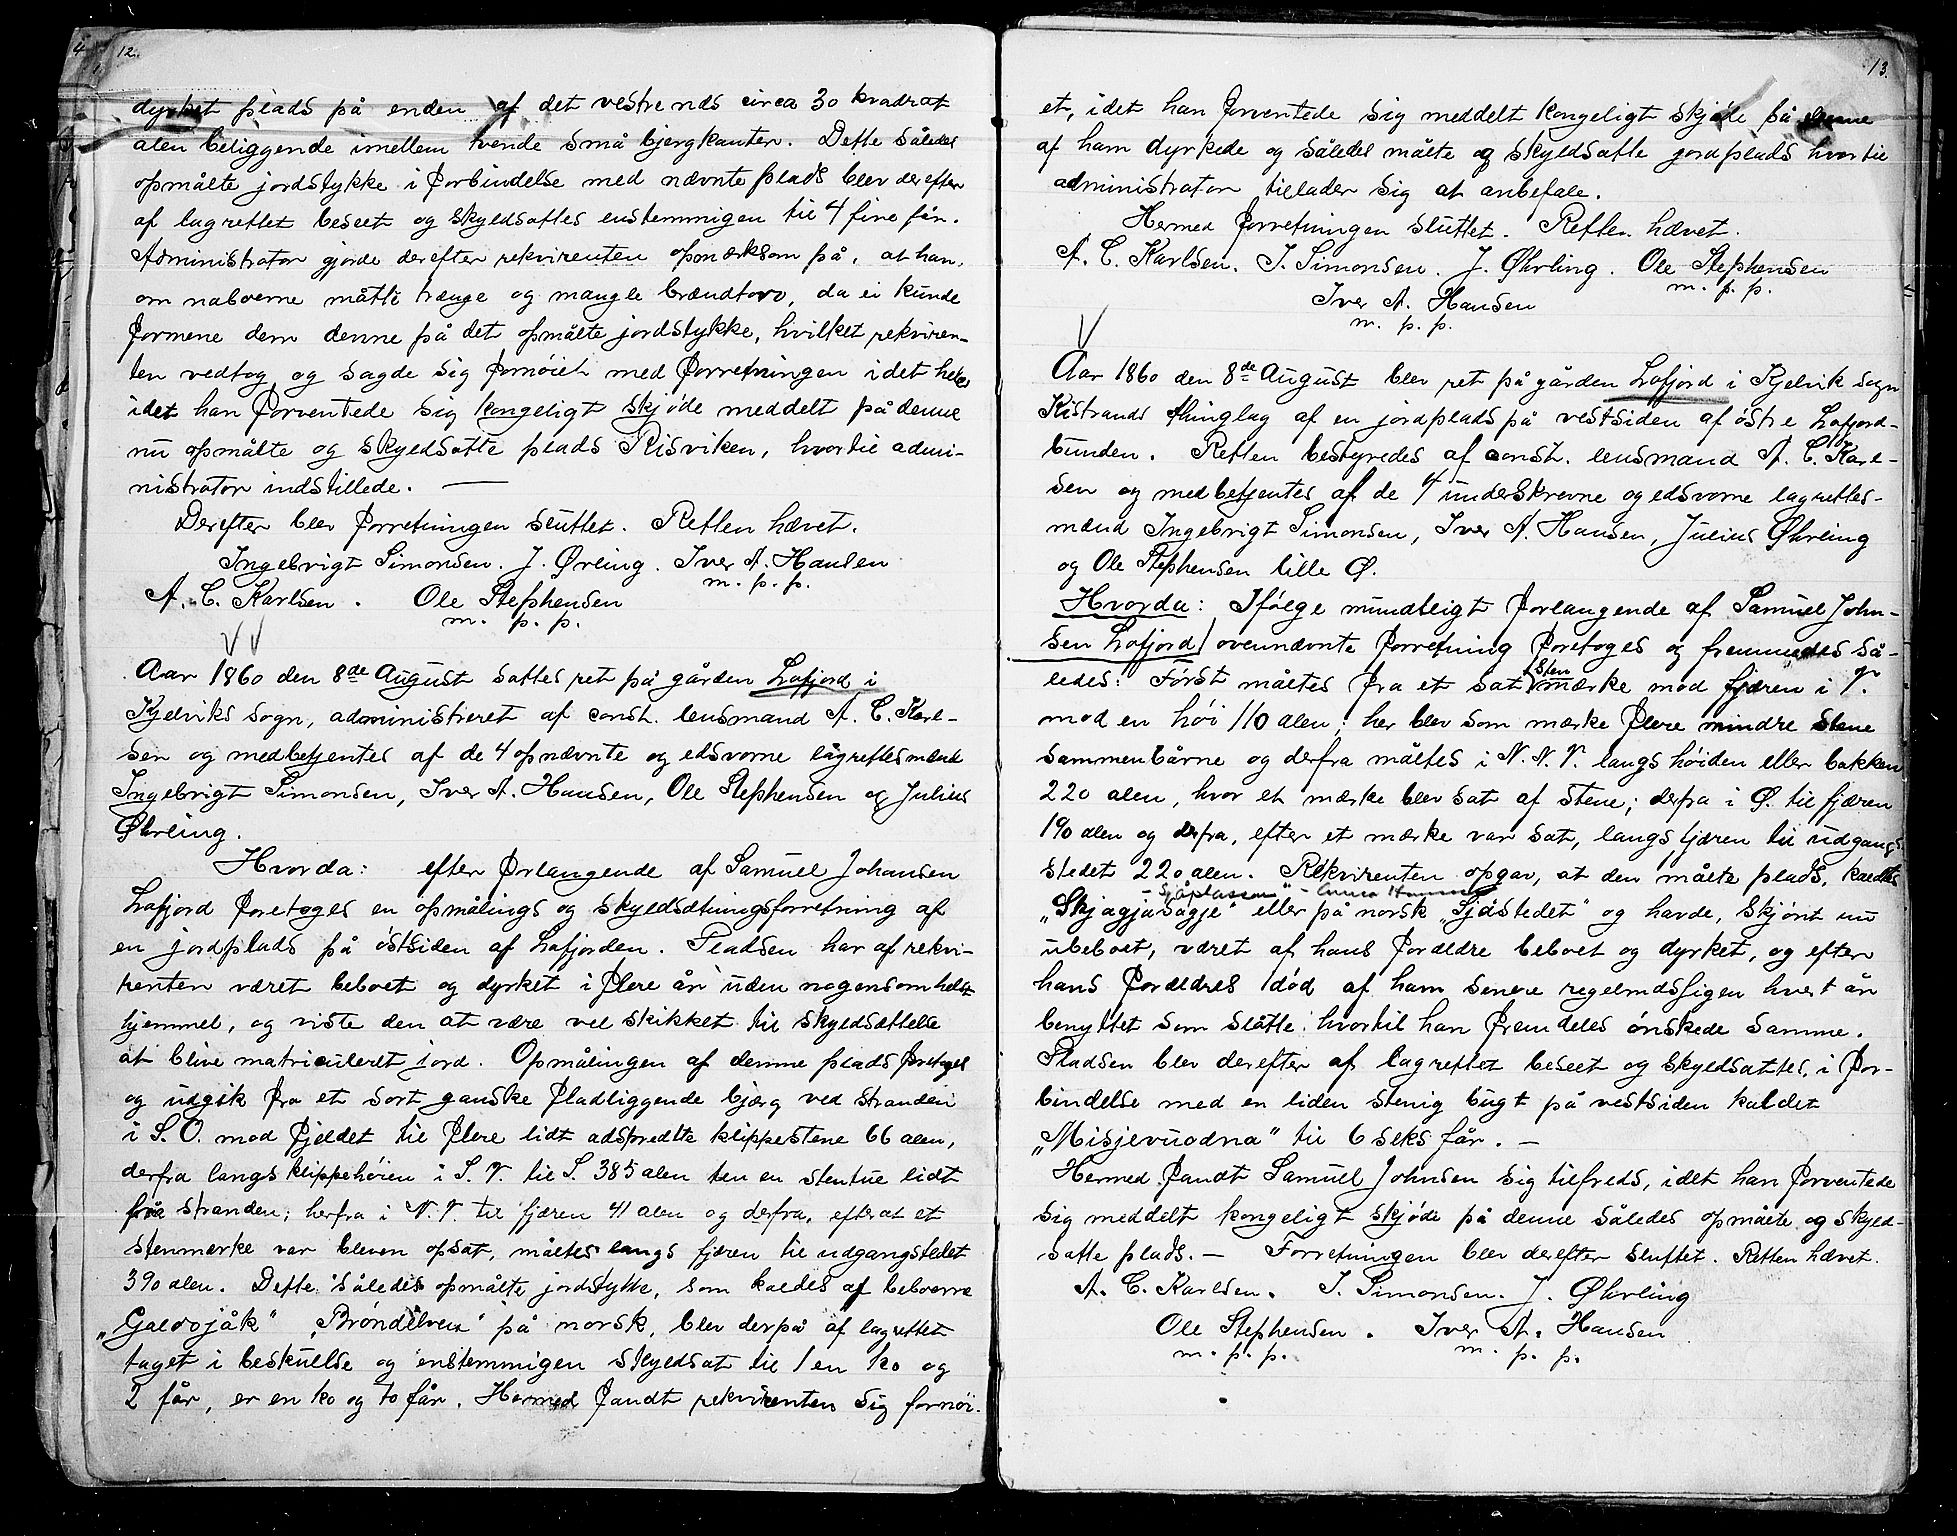 12.
dyrket plads på enden af det vestre nds circa 30 kvadrat
alen beliggende imellem tvende små bjergkanter. Dette således
opmålte jordstykke i forbindelse med nævnte plads blev derefter
af lagrettet beseet og skyldsattes enstemmigen til 4 fire får.
Administrator gjorde derefter rekvirenten opmærksom på, at han,
om naboerne måtte trænge og mangle brændtorv, da ei kunde
formene dem denne på det opmålte jordstykke, hvilket rekviren-
ten vedtog og sagde sig fornöiet med forretningen i det hele
idet han forventede sig kongeligt skjöde meddelt på denne
nu opmålte og skyldsatte plads Risviken, hvortil admi-
nistrator indstillede. —
Derefter blev forretningen sluttet. Retten hævet.
Ingebrigt Simonsen. J. Örling. Iver A. Hansen
m. p. p.
A. C. Karlsen. Ole Stephensen
m. p. p.
Aar 1860 den 8de August sattes ret på gården Lafjord i
Kjelviks sogn, administreret af const. lensmand A. C. Karl-
sen og medbetjentes af de 4 opnævnte og edsvorne lagrettesmænd
Ingebrigt Simonsen, Iver A. Hansen, Ole Stephensen og Julius
Öhrling.
Hvorda: efter forlangende af Samuel Johansen
Lafjord foretoges en opmålings og skyldsætningsforretning af
en jordplads på östsiden af Lafjorden. Pladsen har af rekvi-
renten været beboet og dyrket i flere år uden nogensomhelst
hjemmel, og viste den at være vel skikket til skyldsættelse
at blive matriculeret jord. Opmålingen af denne plads foretoges
og udgik fra et sort ganske fladliggende bjærg ved stranden
i S. O. mod fjeldet til flere lidt adspredte klippestene 66 alen,
derfra langs klippehöien i S. V. til S. 385 alen ten en stentue lidt
fra stranden; herfra i N. V. til fjæren 41 alen og derfra, efterat et
stenmærke var bleven opsat, måltes langs fjæren til udgangstedet
390 alen. Dette således opmålte jordstykke, som kaldes af beboerne
„Galvojåk" „Bröndelven" på norsk, blev derpå af lagrettet
taget i beskuelse og enstemmigen skyldsat til 1 en ko og
2 får, er en ko og to får. Hermed fandt rekvirenten sig fornöi-
13.
et, idet han forventede sig meddelt kongeligt skjöde på denne
af ham dyrkede og således målte og skyldsatte jordplads hvortil
administrator tillader sig at anbefale.
Hermed forretningen sluttet. Retten hævet.
A. C. Karlsen. I. Simonsen. J. Öhrling. Ole Stephensen
m. p. p.
Iver A. Hansen
m. p. p.
Aar 1860 den 8de August blev ret på gården Lafjord i Kjelvik sogn
Kistrands thinglag af en jordplads på vestsiden af östre Lafjord-
bunden. Retten bestyredes af const. lensmand A. C. Karl-
sen og medbetjentes af de 4 underskrevne og edsvorne lagrettes-
mænd Ingebrigt Simonsen, Iver A. Hansen, Julius Öhrling
og Ole Stephensen lille Ö.
Hvorda: Ifölge mundtligt forlangende af Samuel John-
sen Lafjord ovennævnte forretning foretoges og fremmedes så-
ledes: Först måltes fra et sat sten mærke mod fjæren i V.
mod en höi 110 alen; her blev som mærke flere mindre stene
sammenbårne og derfra måltes i N. N. V. langs höiden eller bakken
220 alen, hvor et mærke blev sat af stene; derfra i Ö. til fjæren
190 alen og derfra, efter et mærke var sat, langs fjæren til udgangs
stedet 220 alen. Rekvirenten opgav, at den målte plads, kaldtes
„Skjagjasagje" eller på norsk „Sjåstedet" og havde, skjönt nu
ubeboet, været af hans forældre beboet og dyrket, og efter
hans forældres död af ham senere regelmæssigen hvert år
benyttet som slåtte: hvortil han fremdeles önskede samme.
Pladsen blev derefter af lagrettet beseet og skyldsattes, i for-
bindelse med en liden stenig bugt på vestsiden kaldet
„Misjevuodna" til 6 seks får. —
Hermed fandt Samuel Johnsen sig tilfreds, idet han forventede
sig meddelt kongeligt skjöde på denne således opmålte og skyld-
satte plads. — Forretningen blev derefter sluttet. Retten hævet.
A. C. Karlsen. I. Simonsen. J. Öhrling
Ole Stephensen. Iver A. Hansen
m. p. p. m. p. p.